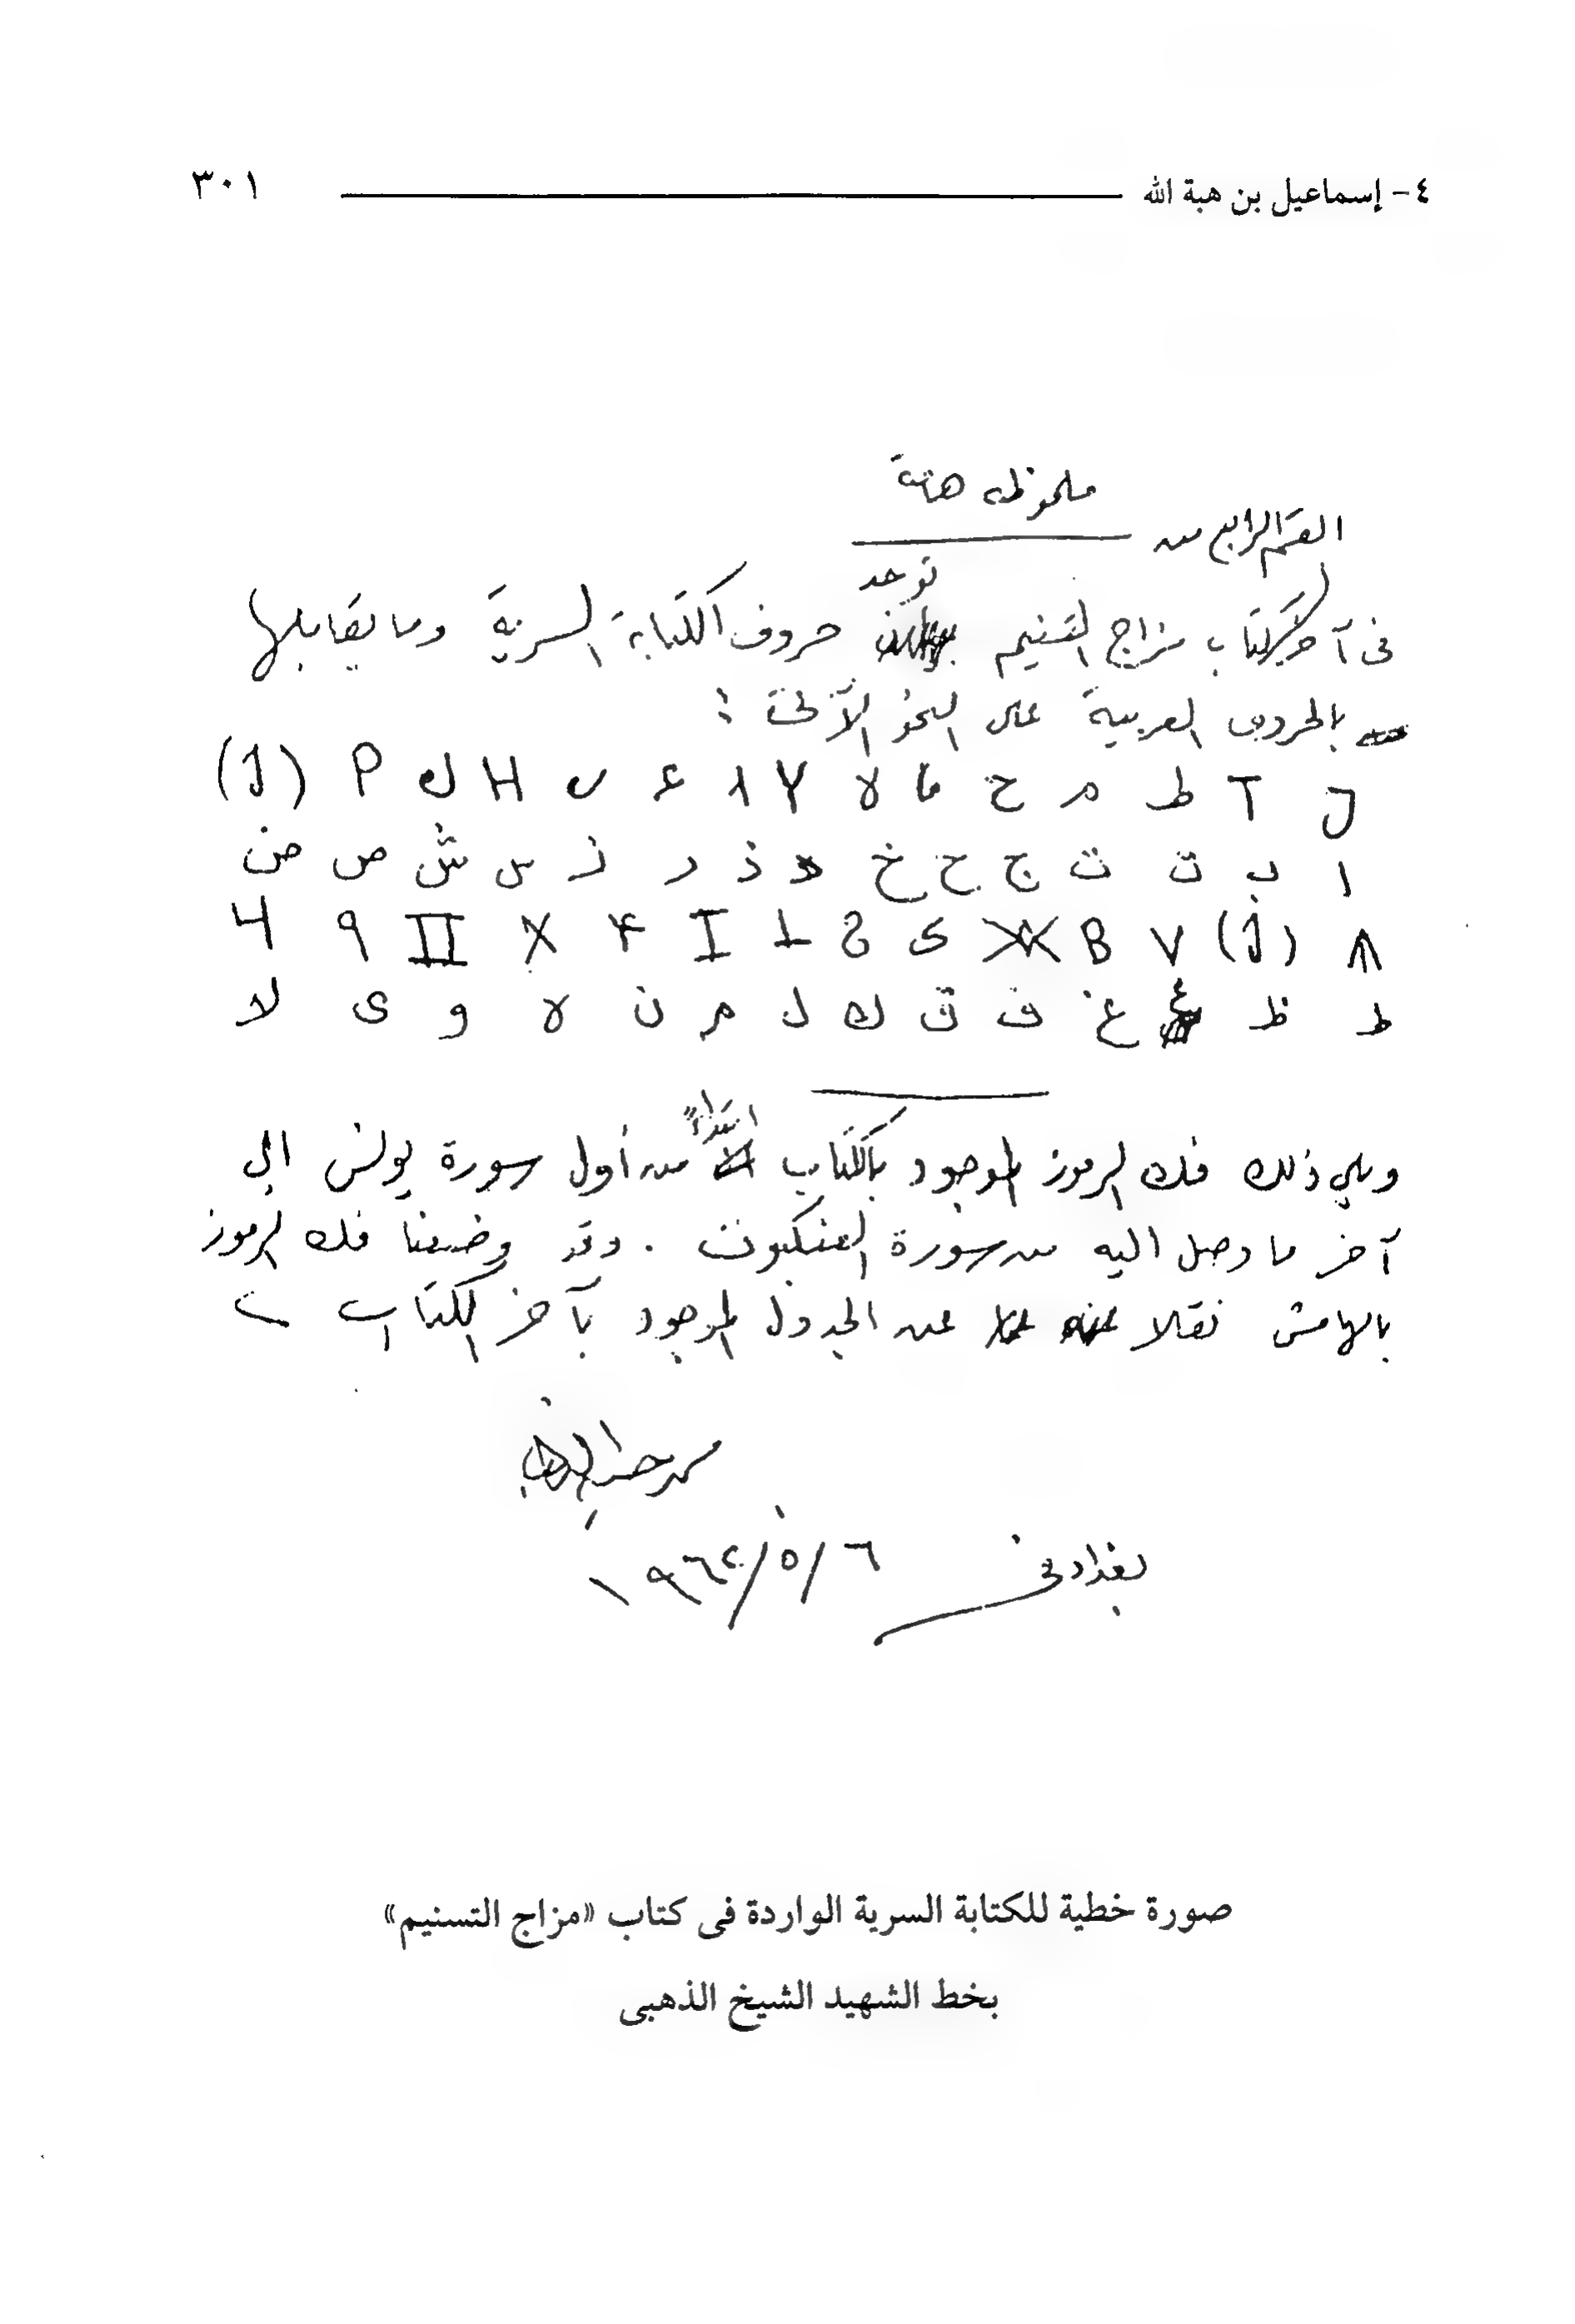 ٤- إسماعيل بن هبة الله ٣٠١
ملحوظة هامة
القسم الرابع من
فى آخر كتاب مزاج التسنيم توجد حروف الكتابة السرية وما يقابلها
بالحروف العربية على النحو الآتى :
T ط م ح ما لا Y ٨ ء ں H ل P (1)
ا ب ت ث ج ح خ د ذ ر ز س ش ص ض
٨ (1) V B ى 2 I X II 9 4
ط ظ ع غ ف ق ك ل م ن ه و ى لا
ويلى ذلك فك الرموز الموجود بالكتاب ابتداءً من أول سورة يونس الى
آخر ما وصل اليه من سورة العنكبوت . وقد وضعنا فك الرموز
بالهامش نقلا عن الجدول الموجود بآخر الكتاب
محمد حسين الذهبى
بغداد فى ٦/٥/١٩٦٢
صورة خطية للكتابة السرية الواردة فى كتاب «مزاج التسنيم»
بخط الشهيد الشيخ الذهبى